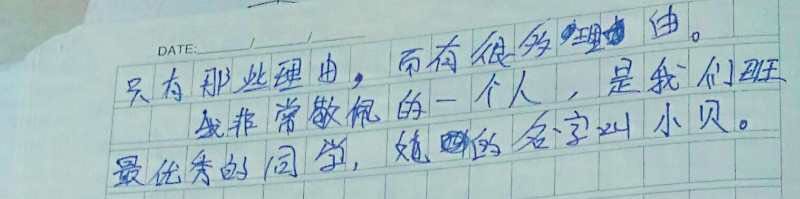 DATE: / /
只有那些理由，而有很多理由。
我非常敬佩的一个人，是我们班
最优秀的同学，她的名字叫小贝。